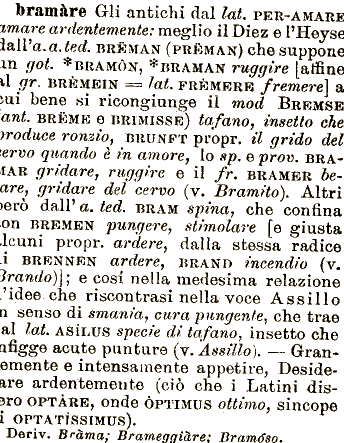 bramàre Gli antichi dal lat. PER-AMARE
amare ardentemente: meglio il Diez e l'Heyse
dall'a.a.ted. BRËMAN (PRËMAN) che suppone
un got. *BRAMÒN, *BRAMAN ruggire [affine
al gr. BRÈMEIN = lat. FRÈMERE fremere] a
cui bene si ricongiunge il mod BREMSE
(ant. BRÈME e BRIMISSE) tafano, insetto che
produce ronzio, BRUNFT propr. il grido del
cervo quando è in amore, lo sp. e prov. BRA-
MAR gridare, ruggire e il fr. BRAMER be-
are, gridare del cervo (v. Bramito). Altri
però dall'a. ted. BRAM spina, che confina
con BREMEN pungere, stimolare [e giusta
alcuni propr. ardere, dalla stessa radice
di BRENNEN ardere, BRAND incendio (v.
Brando)]; e così nella medesima relazione
d'idee che riscontrasi nella voce Assillo
in senso di smania, cura pungente, che trae
dal lat. ASÌLUS specie di tafano, insetto che
infigge acute punture (v. Assillo). — Gran-
demente e intensamente appetire, Deside-
rare ardentemente (ciò che i Latini dis-
sero OPTÀRE, onde ÒPTIMUS ottimo, sincope
di OPTATÍSSIMUS).
Deriv. Bràma; Brameggiàre; Bramóso.